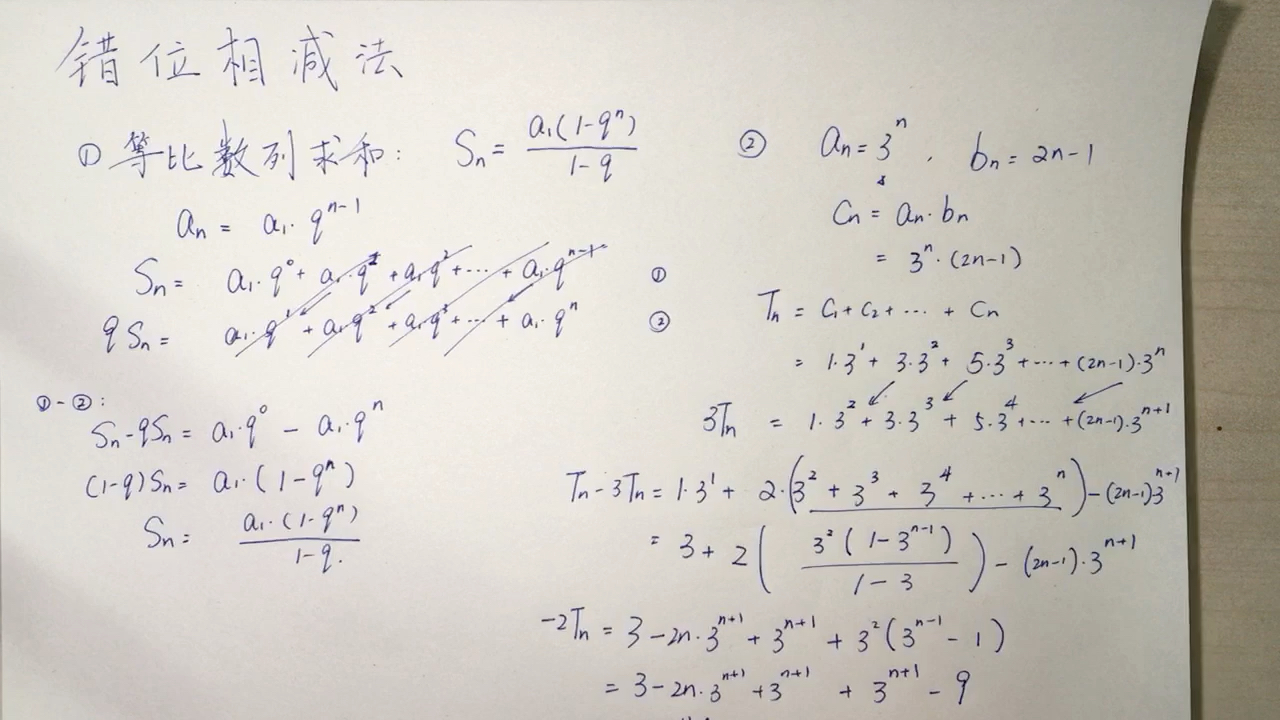 错位相减法
① 等比数列求和: Sₙ = a₁(1-qⁿ) / 1-q
aₙ = a₁·qⁿ⁻¹
Sₙ = a₁·q⁰ + a₁·q¹ + a₁·q² + ··· + a₁·qⁿ⁻¹ ①
qSₙ = a₁·q¹ + a₁·q² + a₁·q³ + ··· + a₁·qⁿ ②
①-②:
Sₙ-qSₙ = a₁·q⁰ - a₁·qⁿ
(1-q)Sₙ = a₁·(1-qⁿ)
Sₙ = a₁·(1-qⁿ) / 1-q.
② aₙ = 3ⁿ, bₙ = 2n-1
Cₙ = aₙ·bₙ
= 3ⁿ·(2n-1)
Tₙ = C₁+C₂+ ··· + Cₙ
= 1·3¹ + 3·3² + 5·3³ + ··· + (2n-1)·3ⁿ
3Tₙ = 1·3² + 3·3³ + 5·3⁴ + ··· + (2n-1)·3ⁿ⁺¹
Tₙ-3Tₙ = 1·3¹ + 2·(3² + 3³ + 3⁴ + ··· + 3ⁿ) - (2n-1)3ⁿ⁺¹
= 3 + 2( 3²(1-3ⁿ⁻¹) / 1-3 ) - (2n-1)·3ⁿ⁺¹
-2Tₙ = 3-2n·3ⁿ⁺¹ + 3ⁿ⁺¹ + 3²(3ⁿ⁻¹-1)
= 3-2n·3ⁿ⁺¹ + 3ⁿ⁺¹ + 3ⁿ⁺¹ - 9